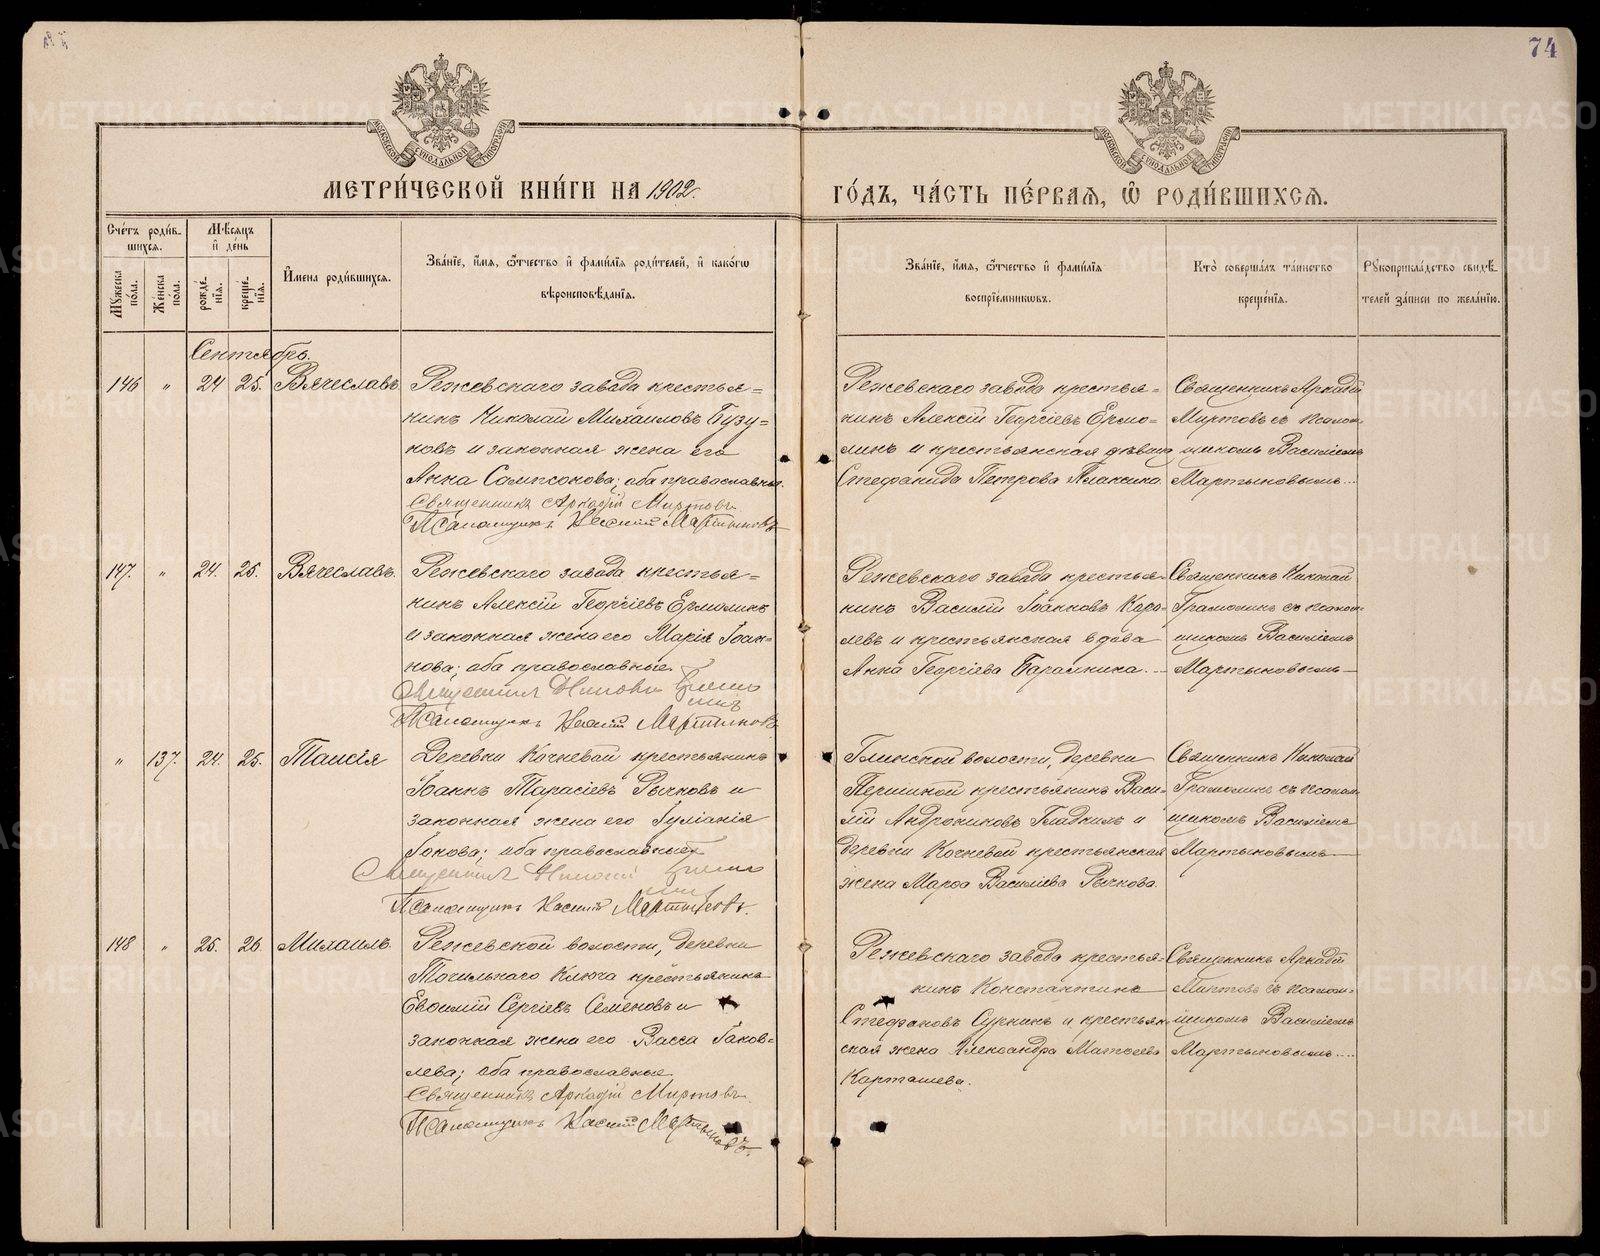 74
МЕТРИ́ЧЕСКОЙ КНИ́ГИ НА 1902 г.
ГО́ДЪ, ЧА́СТЬ ПЕ́РВАЯ, Ѿ РОДИ́ВШИХСЯ.
Сче́тъ роди́в-
шихся.
Мꙋ́жеска по́ла.
Же́нска по́ла.
Мѣ́сяцъ и де́нь
рожде́-
нїя.
креще́-
нїя.
И҆мена роди́вшихся.
Зва́нїе, и҆́мя, ѻ҆́тчество и҆ фами́лїя роди́телей, и҆ како́гѡ
вѣроисповѣ́данїя.
Зва́нїе, и҆́мя, ѻ҆́тчество и҆ фами́лїя
воспрїе́мникѡвъ.
Кто̀ соверша́лъ та́инство
креще́нїя.
Рꙋкоприкла́дство свидѣ́-
телей за́писи по жела́нїю.
Сентябрь.
146 " 24 25. Вячеславъ
Режевскаго завода крестья=
нинъ Николай Михаиловъ Бузу=
новъ и законная жена его
Анна Сампсонова; оба православные.
Священникъ Аркадій Миртовъ
Псаломщикъ Василій Мартыновъ
Режевскаго завода крестья=
нинъ Алексій Георгіевъ Ермо=
линъ и крестьянская дѣвица
Стефанида Петрова Плаксина
Священникъ Аркадій
Миртовъ съ псалом-
щикомъ Василіемъ
Мартыновымъ...
147. " 24. 25. Вячеславъ.
Режевскаго завода крестья=
нинъ Алексій Георгіевъ Ермолинъ
и законная жена его Марія Іоан-
нова; оба православные.
Псаломщикъ Василій Мартыновъ
Режевскаго завода крестья-
нинъ Василій Іоанновъ Коро-
левъ и крестьянская вдова
Анна Георгіева
Священникъ Николай
съ псалом-
щикомъ Василіемъ
Мартыновымъ
" 137. 24. 25. Таисія
Деревни Кочневой крестьянинъ
Іоаннъ Тарасіевъ Рычковъ и
законная жена его Іуліанія
оба православные
Псаломщикъ Василій Мартыновъ.
Глинской волости, деревни
Першиной крестьянинъ Васи-
лій Андрониковъ Гладкихъ и
деревни Кочневой крестьянская
жена Марѳа Василіева Рычкова.
Священникъ Николай
съ псалом-
щикомъ Василіемъ
Мартыновымъ
148 " 25. 26. Михаилъ.
Режевской волости, деревни
Точильнаго Ключа крестьянинъ
Евѳимій Сергіевъ Семеновъ и
законная жена его Васса Іаков-
лева; оба православные.
Священникъ Аркадій Миртовъ.
Псаломщикъ Василій Мартыновъ.
Режевскаго завода крестья-
нинъ Константинъ
Стефановъ Суркинъ и крестьян-
ская жена Александра Матѳеева
Карташева.
Священникъ Аркадій
Миртовъ съ псалом-
щикомъ Василіемъ
Мартыновымъ....
METRIKI.GASO-URAL.RU